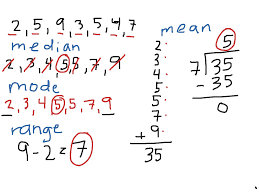 2, 5, 9, 3, 5, 4, 7
median
2, 3, 4, 5, 5, 7, 9
mode
2, 3, 4, 5, 5, 7, 9
range
9 - 2 = 7
mean
2
3
4
5
5
7
+ 9
35
5
7 35
- 35
0